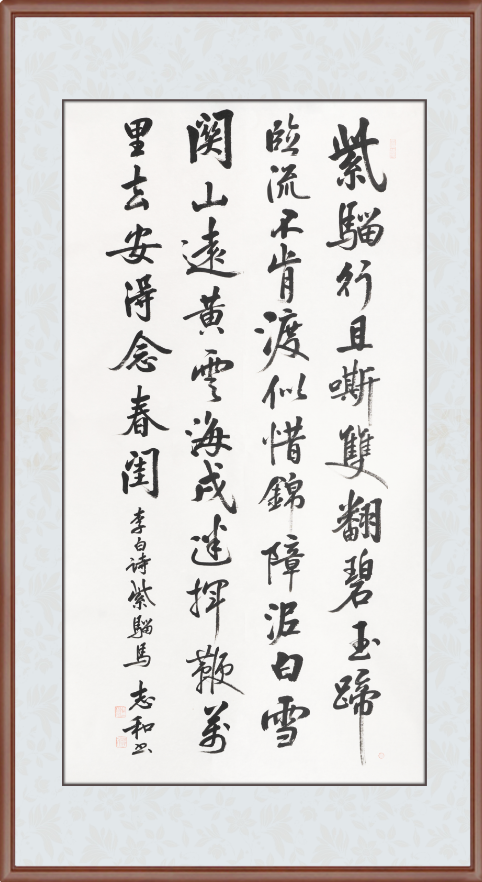 紫騮行且嘶雙翻碧玉蹄
臨流不肯渡似惜錦障泥白雪
關山遠黃雲海戍迷揮鞭萬
里去安得念春閨
李白诗紫騮馬 志和书